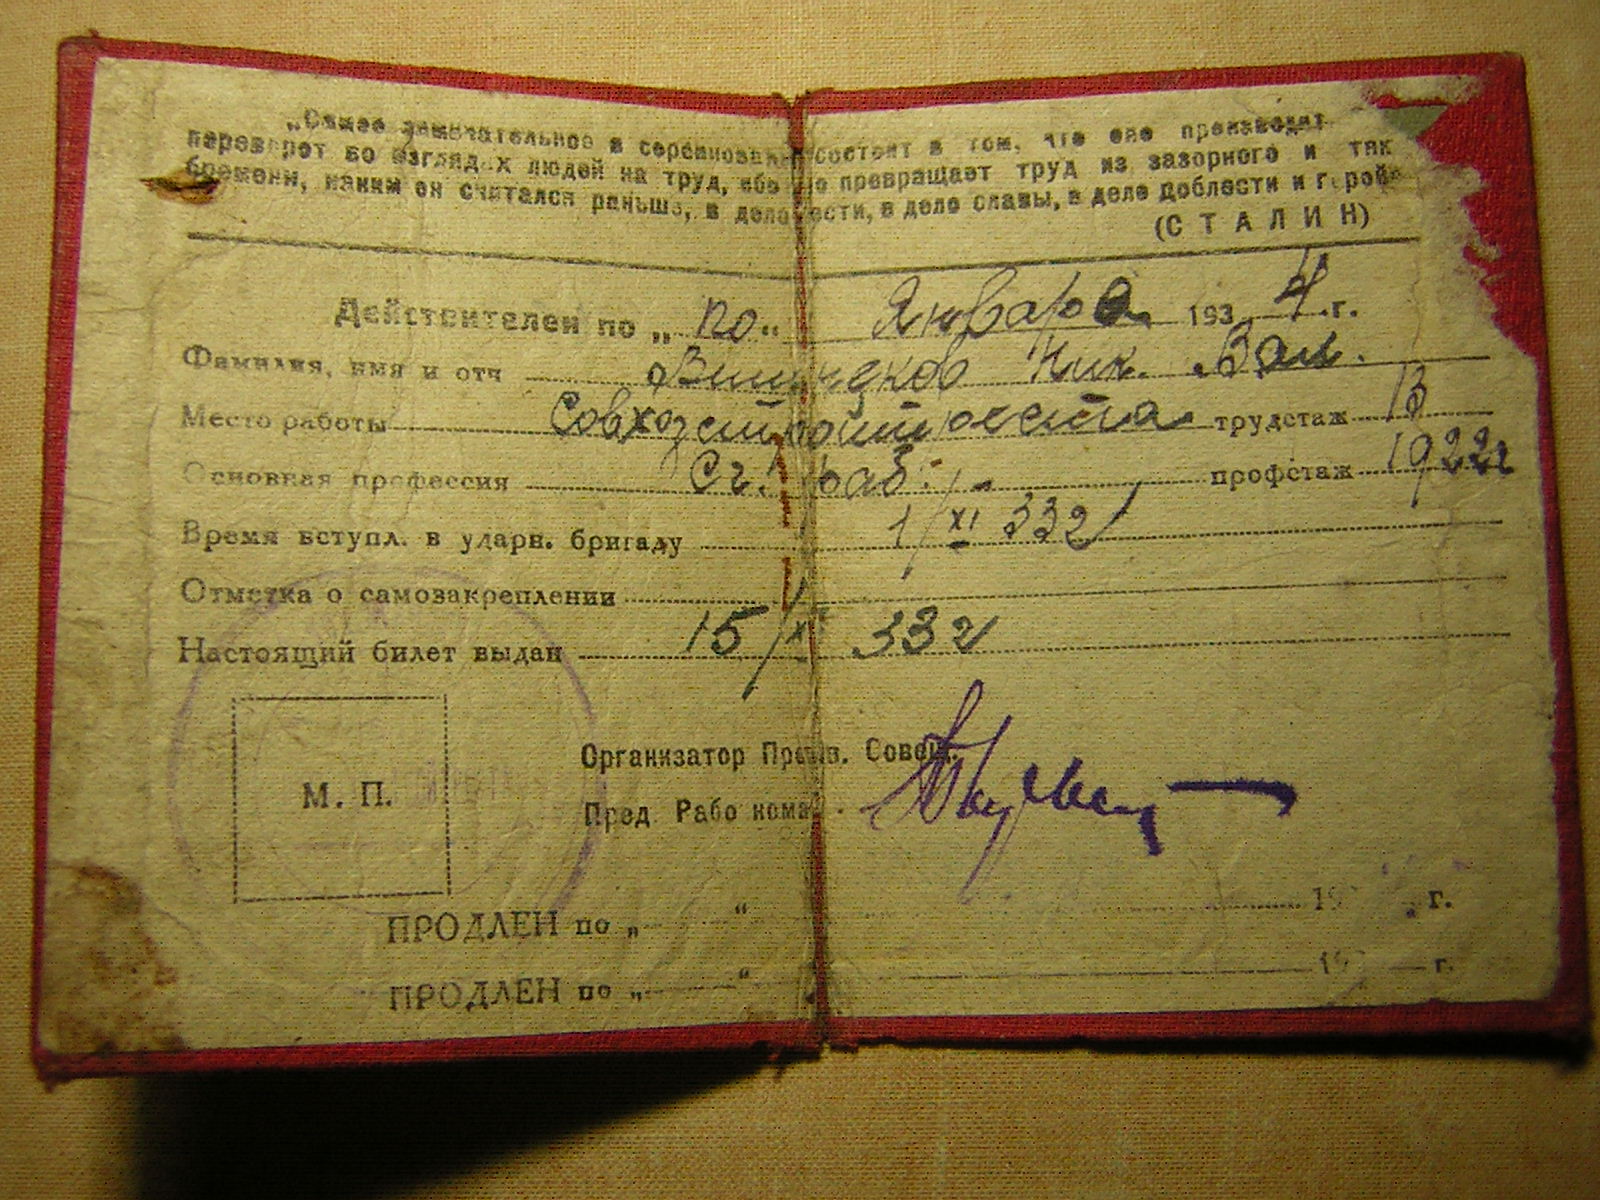 „Самое замечательное в соревновании состоит в том, что оно производит
переворот во взглядах людей на труд, ибо оно превращает труд из зазорного и тяж
бремени, каким он считался раньше, в дело чести, в дело славы, в дело доблести и геройс
(СТАЛИН)
Действителен по „ по “ Января 1934 г.
Фамилия, имя и отч Ник. Вас.
Место работы Совхозстройтреста трудстаж 13
Основная профессия Сч. раб. профстаж 1922г
Время вступл. в ударн. бригаду 1/XI 332
Отметка о самозакреплении
Настоящий билет выдан 15/X 332
М. П.
Организатор Произв. Совещ.
Пред. Рабочкома
ПРОДЛЕН по „ “ 19 г.
ПРОДЛЕН по „ “ 19 г.